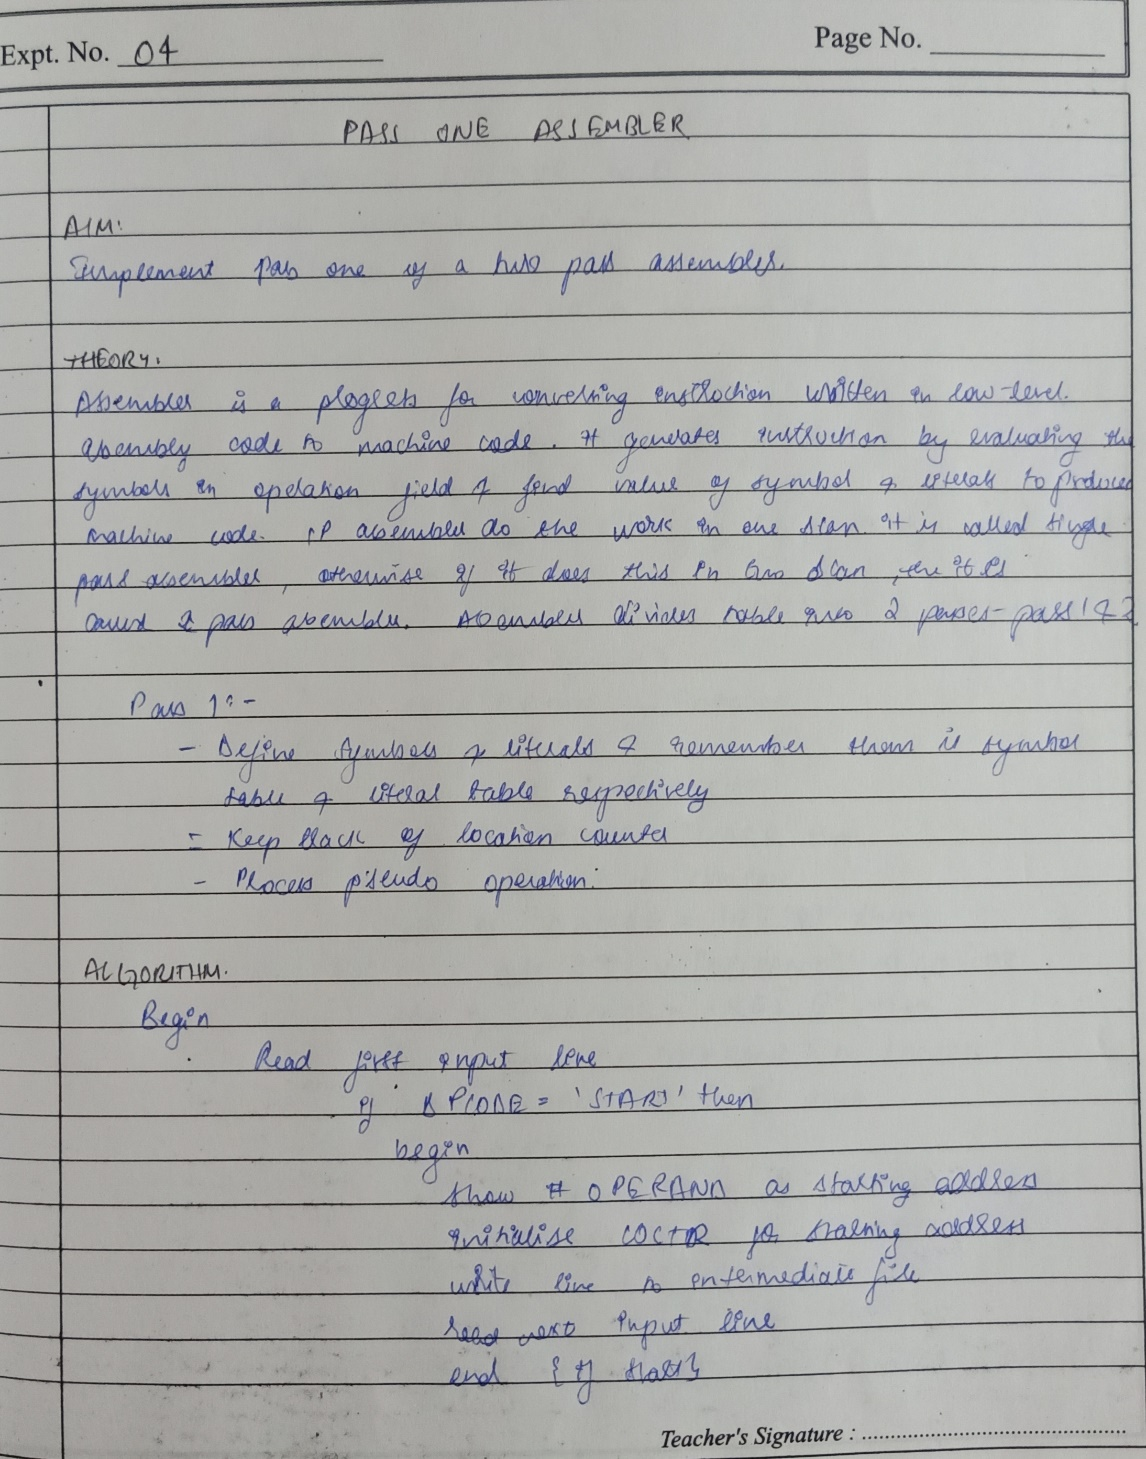 Expt. No. 04
Page No.
PASS ONE ASSEMBLER
AIM:
Implement pass one of a two pass assembler.
THEORY:
Assembler is a program for converting instruction written in low-level
assembly code to machine code. It generates instruction by evaluating the
symbols in operation field & find value of symbol & literals to produce
machine code. If assembler do the work in one scan it is called single
pass assembler, otherwise if it does this in two scan, the it is
called 2 pass assembler. Assembler divides table into 2 passes - pass 1 & 2
Pass 1:-
- Define symbols & literals & remember them is symbol
table & literal table respectively
- Keep track of location counter
- Process pseudo operation.
ALGORITHM.
Begin
Read first input line
if OPCODE = 'START' then
begin
# OPERAND as starting address
initialise LOCCTR to starting address
write line to intermediate file
read next input line
end {if start}
Teacher's Signature :